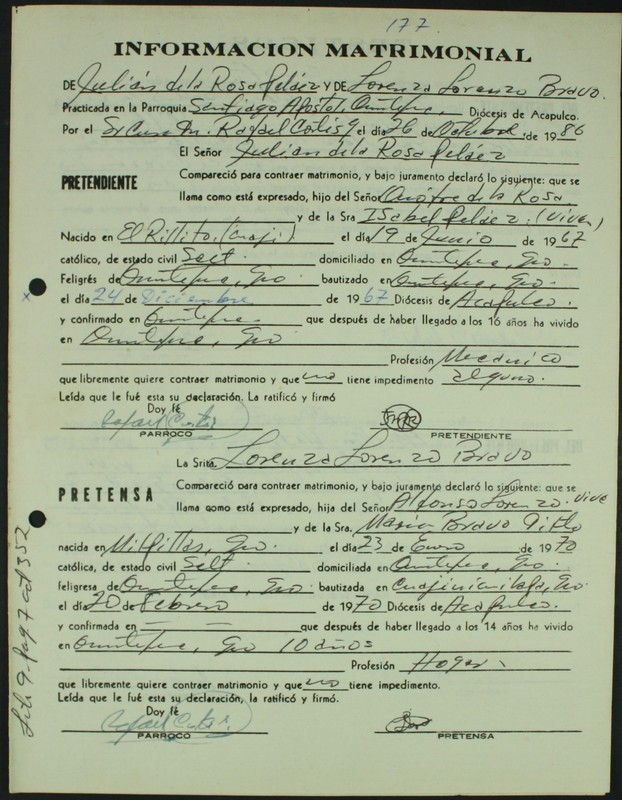 177.
INFORMACION MATRIMONIAL
DE Julián de la Rosa Peláez Y DE Lorenza Lorenzo Bravo.
Practicada en la Parroquia Santiago Apostol, Ometepec, Diócesis de Acapulco.
Por el Sr Cura Dn. Rafael el día 26 de Octubre de 1986
El Señor Julián de la Rosa Peláez
PRETENDIENTE
Compareció para contraer matrimonio, y bajo juramento declaró lo siguiente: que se
llama como está expresado, hijo del Señor Onofre de la Rosa
y de la Sra Isabel Peláez. (viven)
Nacido en El Rillito, (Cuaji). el día 19 de Junio de 1967
católico, de estado civil Solt. domiciliado en Ometepec, Gro.
Feligrés de Ometepec, Gro bautizado en Ometepec, Gro.
x
el día 24 de Diciembre de 1967 Diócesis de Acapulco.
y confirmado en Ometepec que después de haber llegado a los 16 años ha vivido
en Ometepec, Gro
Profesión Mecánico
que libremente quiere contraer matrimonio y que no tiene impedimento alguno.
Leída que le fué esta su declaración. La ratificó y firmó
Doy fé
PARROCO PRETENDIENTE
La Srita. Lorenza Lorenzo Bravo
PRETENSA
Compareció para contraer matrimonio, y bajo juramento declaró lo siguiente: que se
llama como está expresado, hija del Señor Alfonso Lorenzo. vive
y de la Sra. María Bravo
nacida en Milpillas, Gro. el día 23 de Enero de 1970
católica, de estado civil Solt. domiciliada en Ometepec, Gro.
feligresa de Ometepec, Gro. bautizada en Cuajinicuilapa, Gro.
el día 20 de Febrero de 1970 Diócesis de Acapulco.
y confirmada en — — que después de haber llegado a los 14 años ha vivido
en Ometepec, Gro 10 años
Profesión Hogar
que libremente quiere contraer matrimonio y que no tiene impedimento.
Leída que le fué esta su declaración, la ratificó y firmó.
Doy fé
PARROCO PRETENSA
Lib. 9 Pag 7 act 352